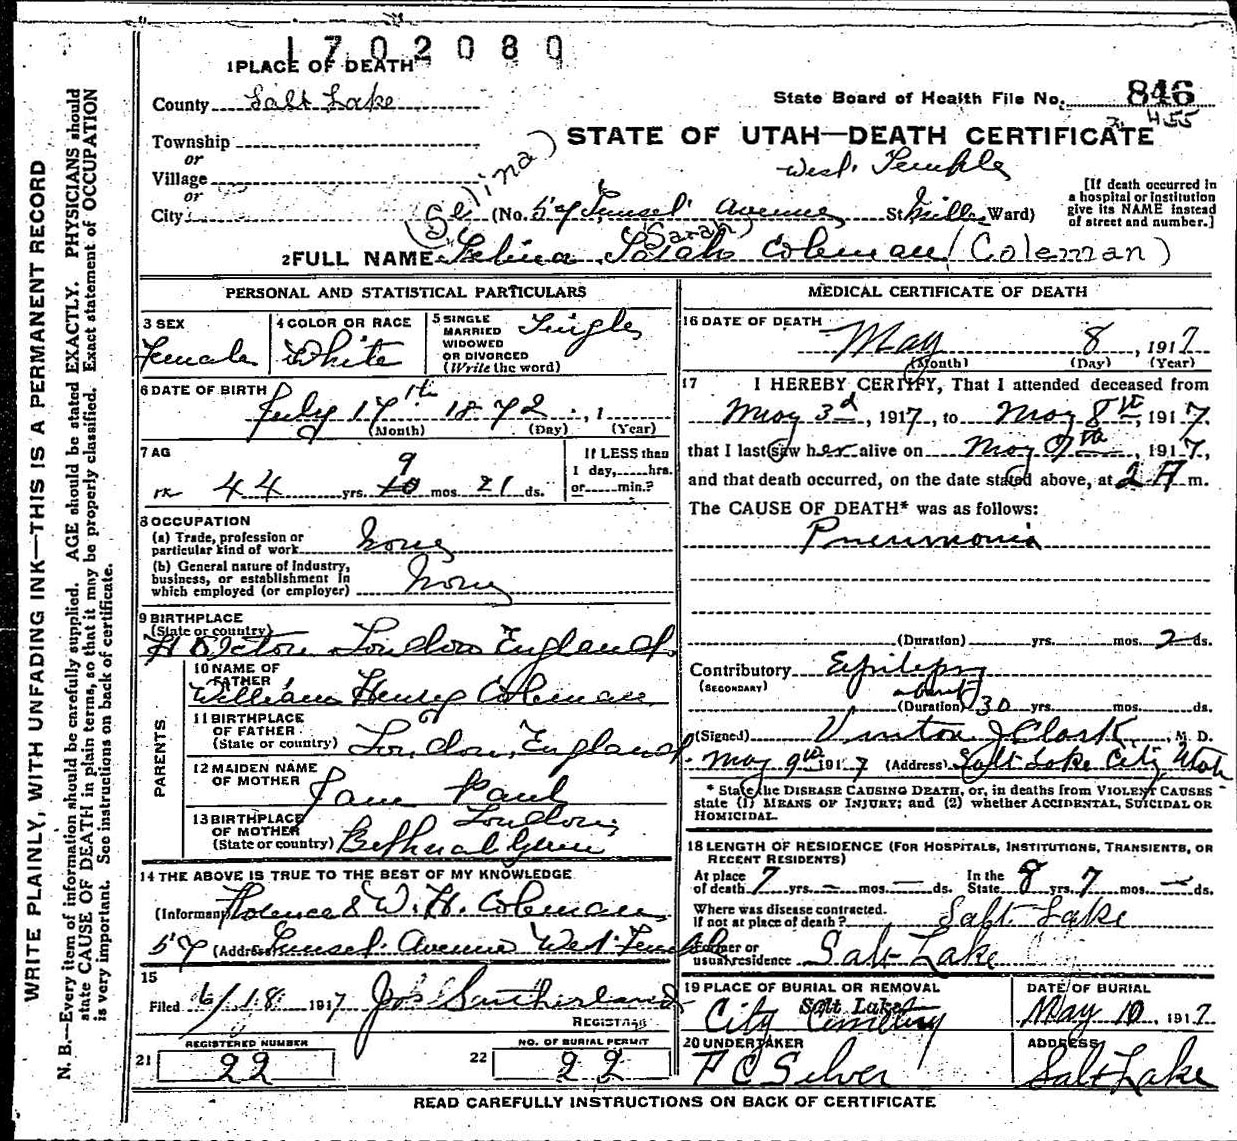 1702080
1 PLACE OF DEATH
County Salt Lake
State Board of Health File No. 846
455
Township
STATE OF UTAH—DEATH CERTIFICATE
or
Village
West Temple
or
[If death occurred in
a hospital or institution
give its NAME instead
of street and number.]
City (No. 57 Sunset Avenue St. Miller Ward)
(Selina) (Sarah)
2 FULL NAME Selina Sarah Coleman (Coleman)
PERSONAL AND STATISTICAL PARTICULARS
3 SEX
Female
4 COLOR OR RACE
White
5 SINGLE
MARRIED
WIDOWED
OR DIVORCED
(Write the word)
Single
6 DATE OF BIRTH
July 17th 1872, 1
(Month) (Day) (Year)
7 AG
44 yrs. 10 9 mos. 21 ds.
If LESS than
1 day, hrs.
or min.?
8 OCCUPATION
(a) Trade, profession or
particular kind of work None
(b) General nature of industry,
business, or establishment in
which employed (or employer) None
9 BIRTHPLACE
(State or country)
Hoxton London England
PARENTS
10 NAME OF
FATHER
William Henry Coleman
11 BIRTHPLACE
OF FATHER
(State or country) London, England
12 MAIDEN NAME
OF MOTHER
Jane Paul
13 BIRTHPLACE
OF MOTHER
(State or country) London
Bethnal Green
14 THE ABOVE IS TRUE TO THE BEST OF MY KNOWLEDGE
(Informant Florence & W. H. Coleman
57 (Address Sunset Avenue West Temple
15
Filed 6/18 1917 Jos Sutherland
REGISTRAR
REGISTERED NUMBER
21 22
NO. OF BURIAL PERMIT
22 22
MEDICAL CERTIFICATE OF DEATH
16 DATE OF DEATH
May 8, 1917
(Month) (Day) (Year)
17 I HEREBY CERTIFY, That I attended deceased from
May 3d, 1917, to May 8th, 1917,
that I last saw her alive on May 7th, 1917,
and that death occurred, on the date stated above, at 2 A m.
The CAUSE OF DEATH* was as follows:
Pneumonia
(Duration) yrs. mos. 2 ds.
Contributory Epilepsy
(SECONDARY)
about
(Duration) 30 yrs. mos. ds.
(Signed) Vinton J Clark, M. D.
May 9th 1917 (Address) Salt Lake City, Utah
* State the DISEASE CAUSING DEATH, or, in deaths from VIOLENT CAUSES
state (1) MEANS OF INJURY; and (2) whether ACCIDENTAL, SUICIDAL OR
HOMICIDAL.
18 LENGTH OF RESIDENCE (FOR HOSPITALS, INSTITUTIONS, TRANSIENTS, OR
RECENT RESIDENTS)
At place
of death 7 yrs. – mos. – ds.
In the
State 8 yrs. 7 mos. – ds.
Where was disease contracted.
If not at place of death? Salt Lake
Former or
usual residence Salt Lake
19 PLACE OF BURIAL OR REMOVAL
Salt Lake
City Cemetery
DATE OF BURIAL
May 10, 1917
20 UNDERTAKER
F C Silver
ADDRESS
Salt Lake
READ CAREFULLY INSTRUCTIONS ON BACK OF CERTIFICATE
WRITE PLAINLY, WITH UNFADING INK—THIS IS A PERMANENT RECORD
N. B.—Every item of information should be carefully supplied. AGE should be stated EXACTLY. PHYSICIANS should
state CAUSE OF DEATH in plain terms, so that it may be properly classified. Exact statement of OCCUPATION
is very important. See instructions on back of certificate.